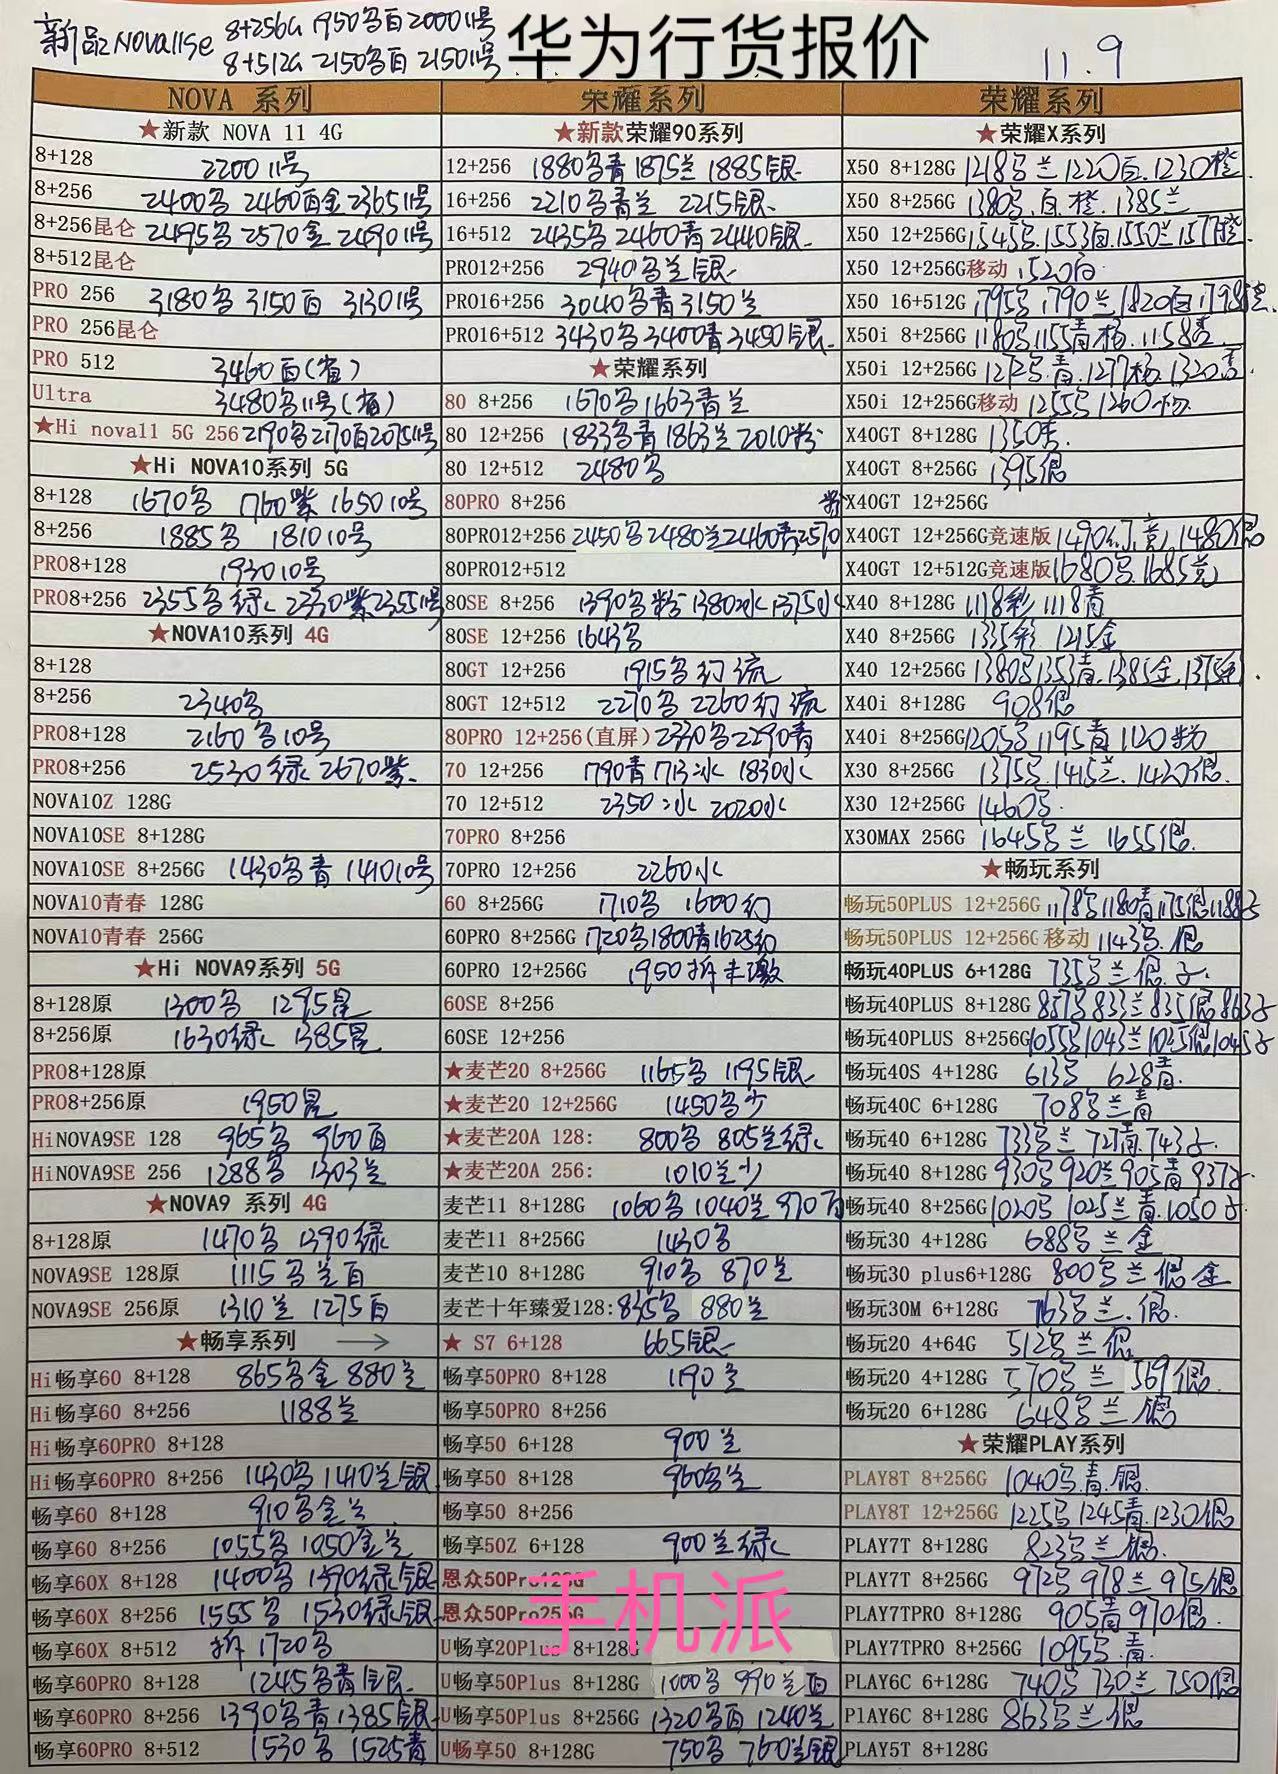 新品Nova11se 8+256G 1950黑白2000 11号
8+512G 2150黑白 2150 11号
华为行货报价
11.9
NOVA 系列
★新款 NOVA 11 4G
8+128 2200 11号
8+256 2400黑 2460白金 2365 11号
8+256昆仑 2495黑 2570金 2490 11号
8+512昆仑
PRO 256 3180黑 3150白 3130 11号
PRO 256昆仑
PRO 512 3460白(省)
Ultra 3480黑11号(省)
★Hi nova11 5G 256 2190黑2170白2075 11号
★Hi NOVA10系列 5G
8+128 1670黑 1760紫 1650 10号
8+256 1885黑 1810 10号
PRO8+128 1930 10号
PRO8+256 2355黑绿 2330紫2355 11号
★NOVA10系列 4G
8+128
8+256 2340黑
PRO8+128 2160黑10号
PRO8+256 2530绿 2670紫
NOVA10Z 128G
NOVA10SE 8+128G
NOVA10SE 8+256G 1430黑青 1410 10号
NOVA10青春 128G
NOVA10青春 256G
★Hi NOVA9系列 5G
8+128原 1300黑 1295昆
8+256原 1630绿 1385昆
PRO8+128原
PRO8+256原 1950昆
HiNOVA9SE 128 965黑 960白
HiNOVA9SE 256 1288黑 1303兰
★NOVA9 系列 4G
8+128原 1470黑 1390绿
NOVA9SE 128原 1115黑兰白
NOVA9SE 256原 1310兰 1275白
★畅享系列 →
Hi畅享60 8+128 865黑金 880兰
Hi畅享60 8+256 1188兰
Hi畅享60PRO 8+128
Hi畅享60PRO 8+256 1430黑 1410兰银
畅享60 8+128 910黑金兰
畅享60 8+256 1055黑 1050金兰
畅享60X 8+128 1400黑 1390绿银
畅享60X 8+256 1555黑 1530绿银
畅享60X 8+512 拆 1720黑
畅享60PRO 8+128 1245黑青银
畅享60PRO 8+256 1390黑青1385银
畅享60PRO 8+512 1530黑 1525青
荣耀系列
★新款荣耀90系列
12+256 1880黑青 1875兰 1885银
16+256 2210黑青兰 2215银
16+512 2435黑 2460青 2440银
PRO12+256 2940黑兰银
PRO16+256 3040黑青3150兰
PRO16+512 3430黑3400青3450银
★荣耀系列
80 8+256 1670黑1663青兰
80 12+256 1833黑青 1863兰 2010粉
80 12+512 2480黑
80PRO 8+256
80PRO12+256 2450黑2480兰2460青2570粉
80PRO12+512
80SE 8+256 1390黑粉 1380冰 1375水
80SE 12+256 1643黑
80GT 12+256 1915黑幻流
80GT 12+512 2270黑 2260幻流
80PRO 12+256(直屏) 2330黑2290青
70 12+256 1790青 1713冰 1830水
70 12+512 2350冰 2020水
70PRO 8+256
70PRO 12+256 2260水
60 8+256G 1710黑 1600幻
60PRO 8+256G 1720黑1800青1625幻
60PRO 12+256G 1950拆未激
60SE 8+256
60SE 12+256
★麦芒20 8+256G 1165黑 1195银
★麦芒20 12+256G 1450黑少
★麦芒20A 128: 800黑 805兰绿
★麦芒20A 256: 1010兰少
麦芒11 8+128G 1060黑 1040兰 970白
麦芒11 8+256G 1430黑
麦芒10 8+128G 910黑 870兰
麦芒十年臻爱128: 835黑 880兰
★ S7 6+128 665银
畅享50PRO 8+128 1190兰
畅享50PRO 8+256
畅享50 6+128 900兰
畅享50 8+128 960黑兰
畅享50 8+256
畅享50Z 6+128 900兰绿
恩众50Pro128G
恩众50Pro256G
U畅享20Plus 8+128G
U畅享50Plus 8+128G 1000黑 990兰白
U畅享50Plus 8+256G 1320黑白 1240兰
U畅享50 8+128G 750黑 760兰银
荣耀系列
★荣耀X系列
X50 8+128G 1218黑兰 1220白 1230橙
X50 8+256G 1380黑.白.橙.1385兰
X50 12+256G 1545黑.1553白.1550兰1577橙
X50 12+256G移动 1520白
X50 16+512G 1795黑 1790兰 1820白 1798橙
X50i 8+256G 1180黑1155青杨.1158青
X50i 12+256G 1275黑.青.1277杨.1320青
X50i 12+256G移动 1255黑 1260杨
X40GT 8+128G 1350青
X40GT 8+256G 1395银
X40GT 12+256G
X40GT 12+256G竞速版 1490幻.竞.1480银
X40GT 12+512G竞速版 1680黑.1685竞
X40 8+128G 1118彩 1118青
X40 8+256G 1335彩 1215金
X40 12+256G 1380黑1353青.1385金.1375彩
X40i 8+128G 908银
X40i 8+256G 1205黑1195青 1120粉
X30 8+256G 1375黑.1415兰.1420银
X30 12+256G 1460黑
X30MAX 256G 1645黑兰 1655银
★畅玩系列
畅玩50PLUS 12+256G 1178黑1180青1175银1188子
畅玩50PLUS 12+256G 移动 1143黑.银
畅玩40PLUS 6+128G 735黑兰银.子
畅玩40PLUS 8+128G 857黑833兰835银863子
畅玩40PLUS 8+256G 1055黑1043兰1025银1045子
畅玩40S 4+128G 613黑 628青
畅玩40C 6+128G 708黑兰青
畅玩40 6+128G 733黑兰 727青.743子
畅玩40 8+128G 930黑920兰905青937子
畅玩40 8+256G 1020黑 1025兰青.1050子
畅玩30 4+128G 688黑兰金
畅玩30 plus6+128G 800黑兰银金
畅玩30M 6+128G 763黑兰.银
畅玩20 4+64G 512黑兰银
畅玩20 4+128G 570黑兰 569银
畅玩20 6+128G 648黑兰银
★荣耀PLAY系列
PLAY8T 8+256G 1040黑.青.银
PLAY8T 12+256G 1225黑1245青.1230银
PLAY7T 8+128G 823黑兰银
PLAY7T 8+256G 972黑 978兰 975银
PLAY7TPRO 8+128G 905青 970银
PLAY7TPRO 8+256G 1095黑.青
PLAY6C 6+128G 740黑 730兰 750银
PlAY6C 8+128G 863黑兰银
PLAY5T 8+128G
手机派